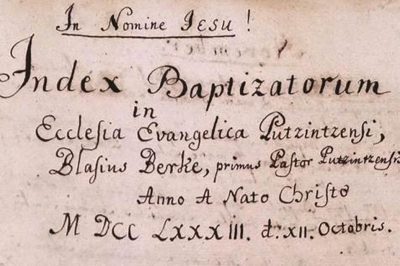 In Nomine Iesu!
Index Baptizatorum
in
Ecclesia Evangelica Putzintzensi,
Blasius Berke, primus Pastor Putzintzensis
Anno A Nato Christo
M DCC LXXXIII. d. XII. Octobris.